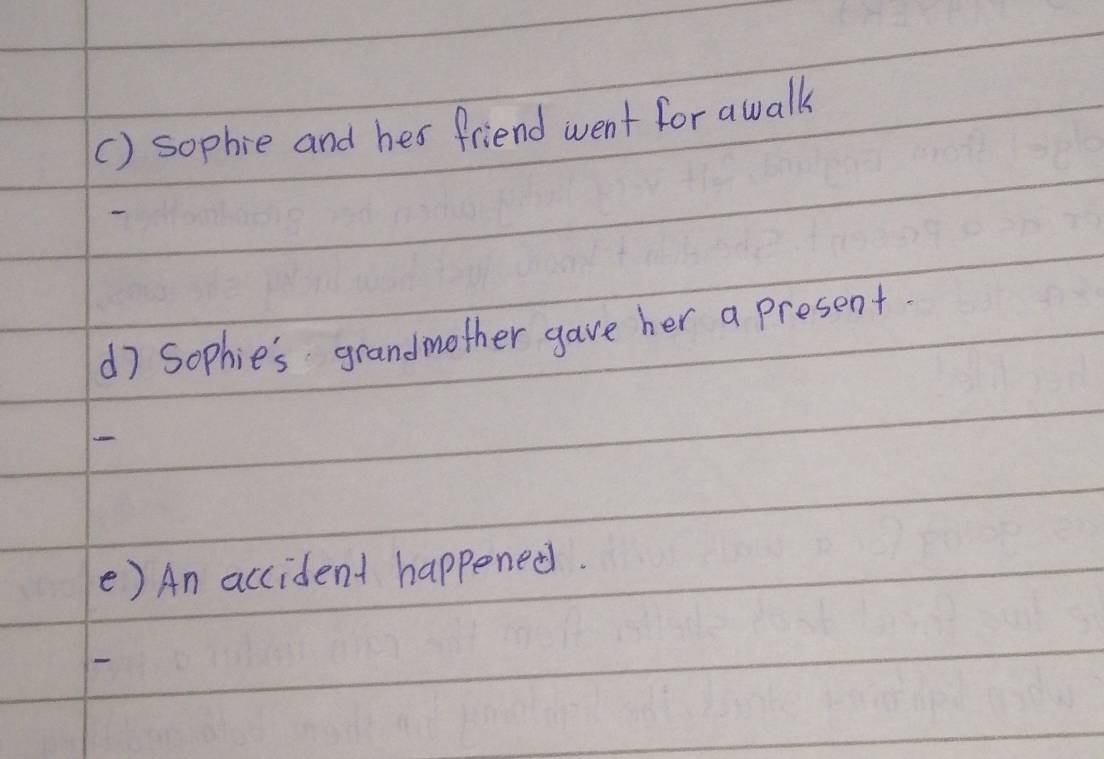 c) Sophie and her friend went for a walk
-
d) Sophie's grandmother gave her a present.
-
e) An accident happened.
-